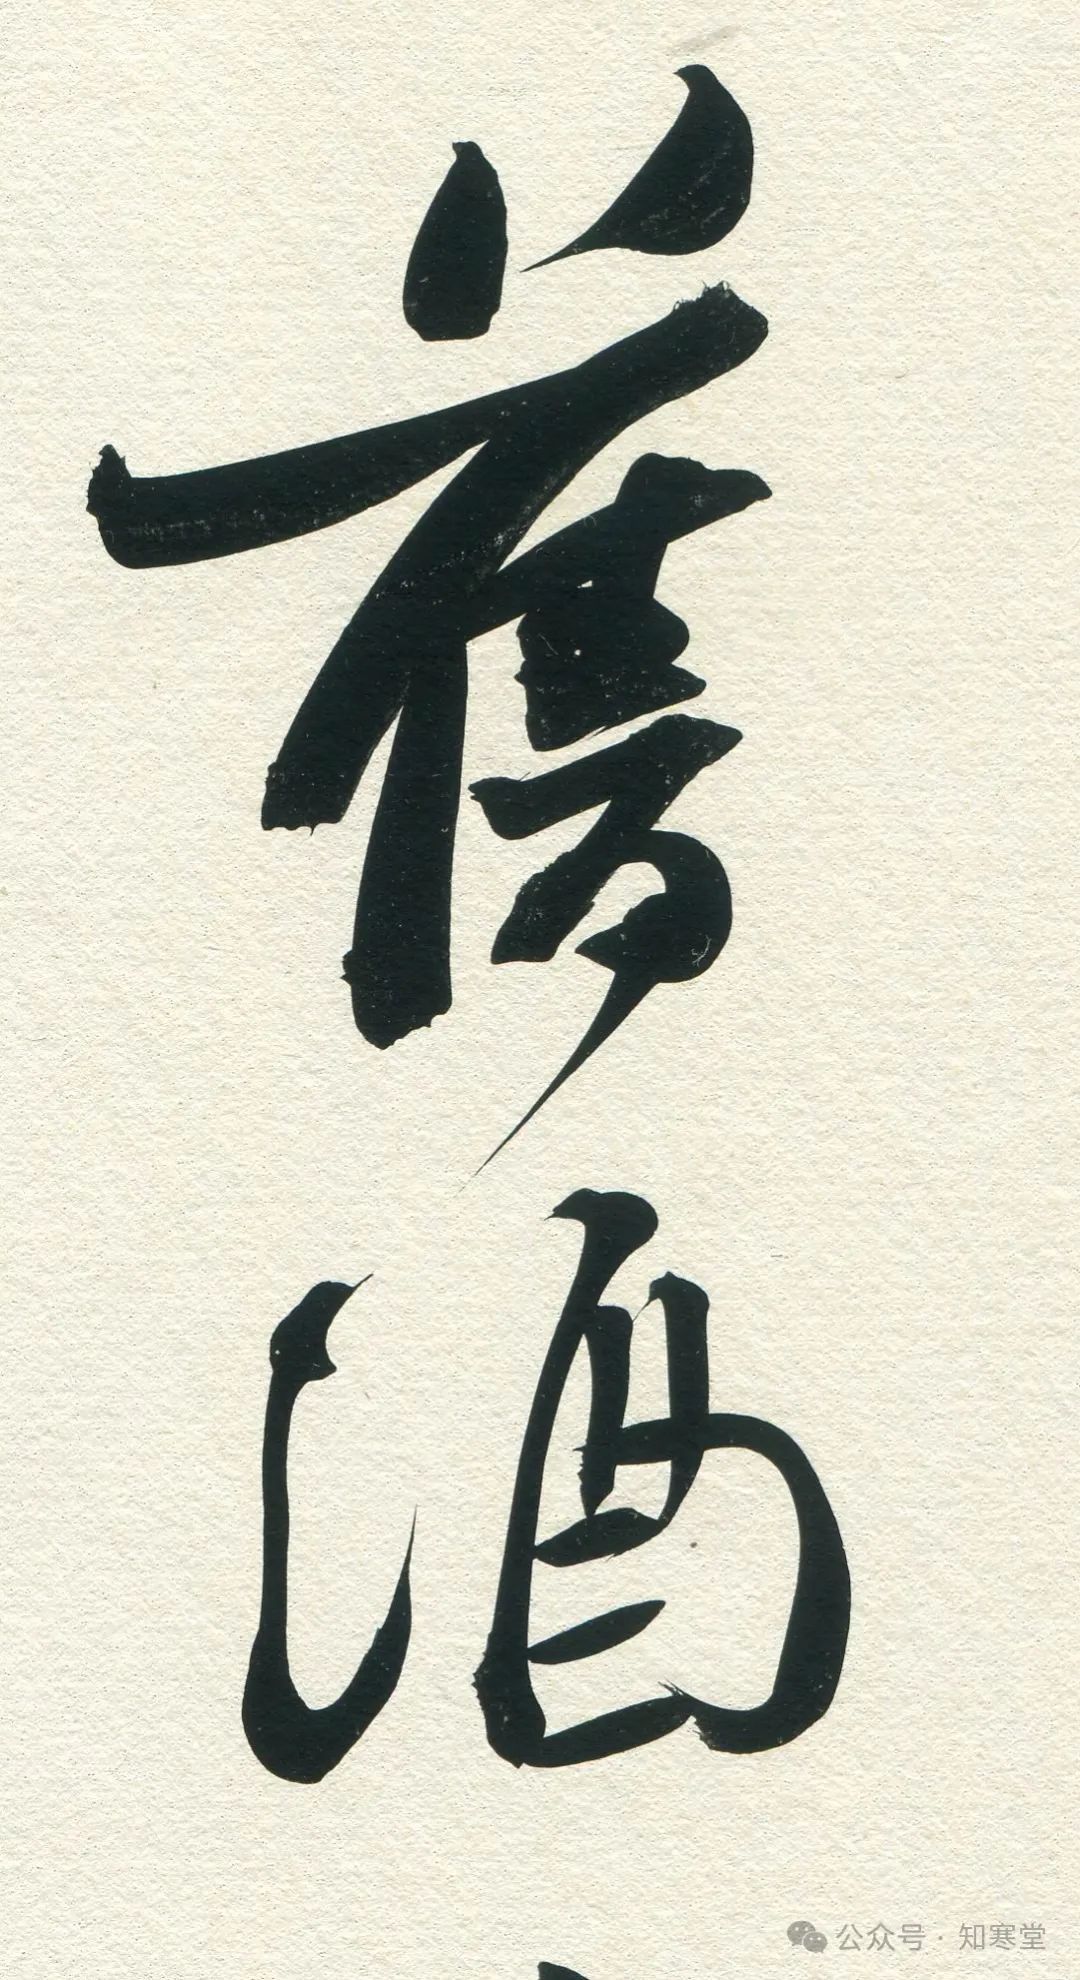 舊酒
公众号 · 知寒堂